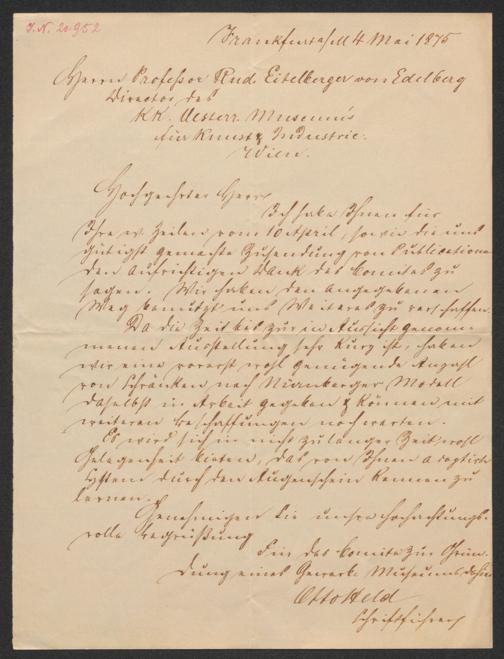 J.N. 21.952
Frankfurt a/M 4 Mai 1875
Herrn Professor Rud. Eitelberger von Edelberg
Director des
KK. Oesterr. Museums
für Kunst & Industrie.
Wien.
Hochgeehrter Herr
Ich habe Ihnen für
Ihre w. Zeilen vom 10 April, sowie die uns
gütigst gemachte Zusendung von Publicationen
den aufrichtigen Dank des Comites zu
sagen. Wir haben den angegebenen
Weg benutzt, uns Weiteres zu verschaffen.
Da die Zeit bis zur in Aussicht genom-
menen Ausstellung sehr kurz ist, haben
wir eine vorerst wohl genügende Anzahl
von Schränken nach Nürnberger Modell
daselbst in Arbeit gegeben & können mit
weiteren Beschaffungen noch warten.
Es wird sich in nicht zu langer Zeit wohl
Gelegenheit bieten, das von Ihnen adoptirte
System durch den Augenschein kennen zu
lernen.
Genehmigen Sie unsre hochachtungs-
volle Begrüßung
Für das Comite zur Grün-
dung eines Gewerbe Museums
Otto Held
Schriftführer